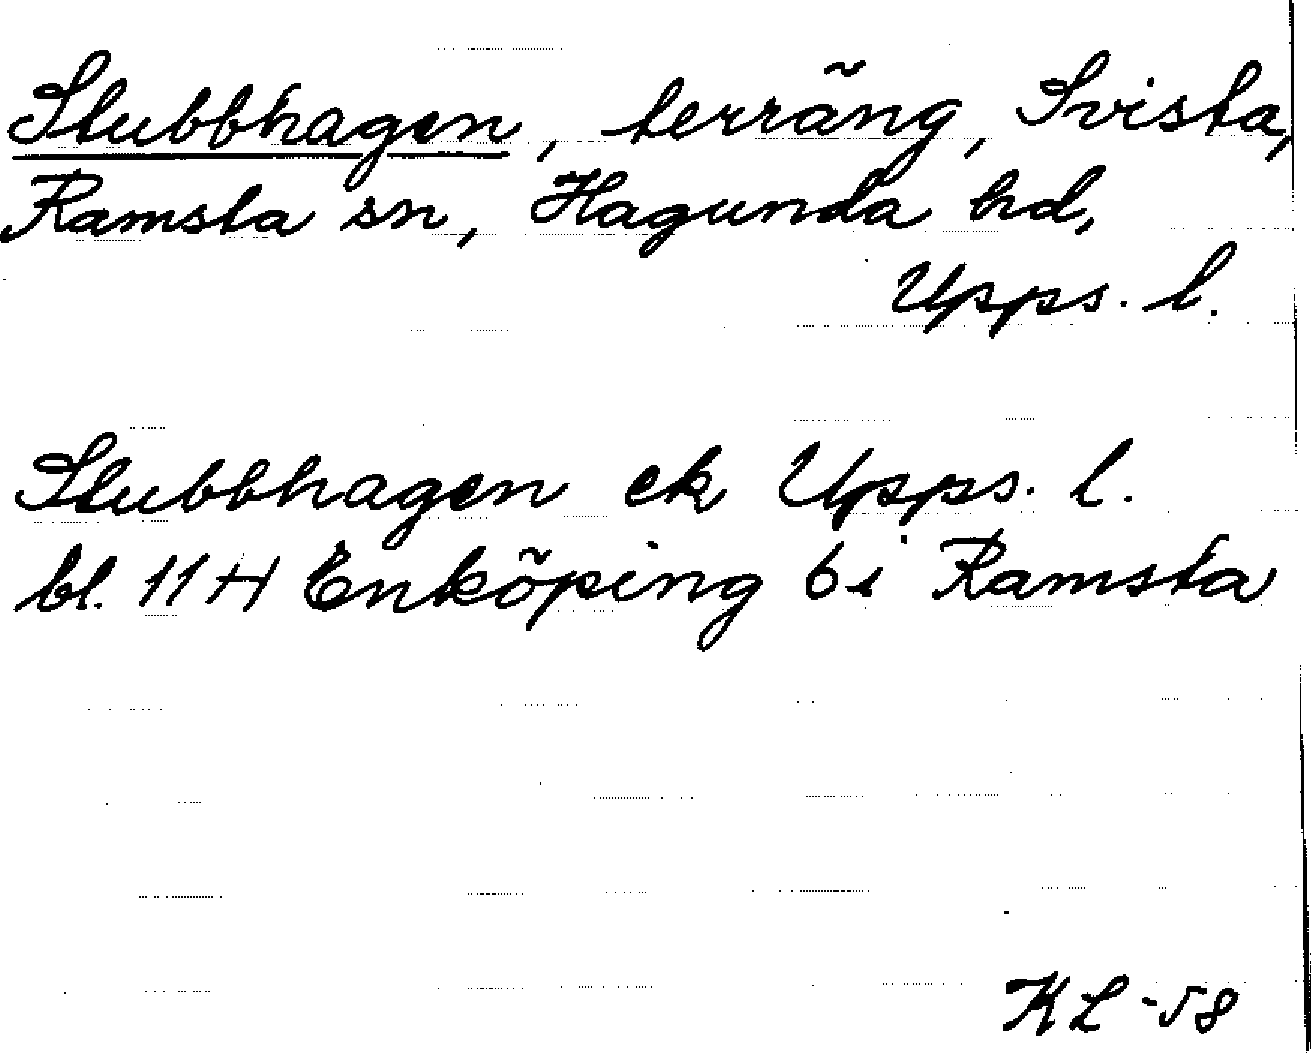 Stubbhagen, terräng, Svista,
Ramsta sn, Hagunda hd,
Upps. l.
Stubbhagen ek Upps. l.
bl. 11 H Enköping 6 i Ramsta
KL -58